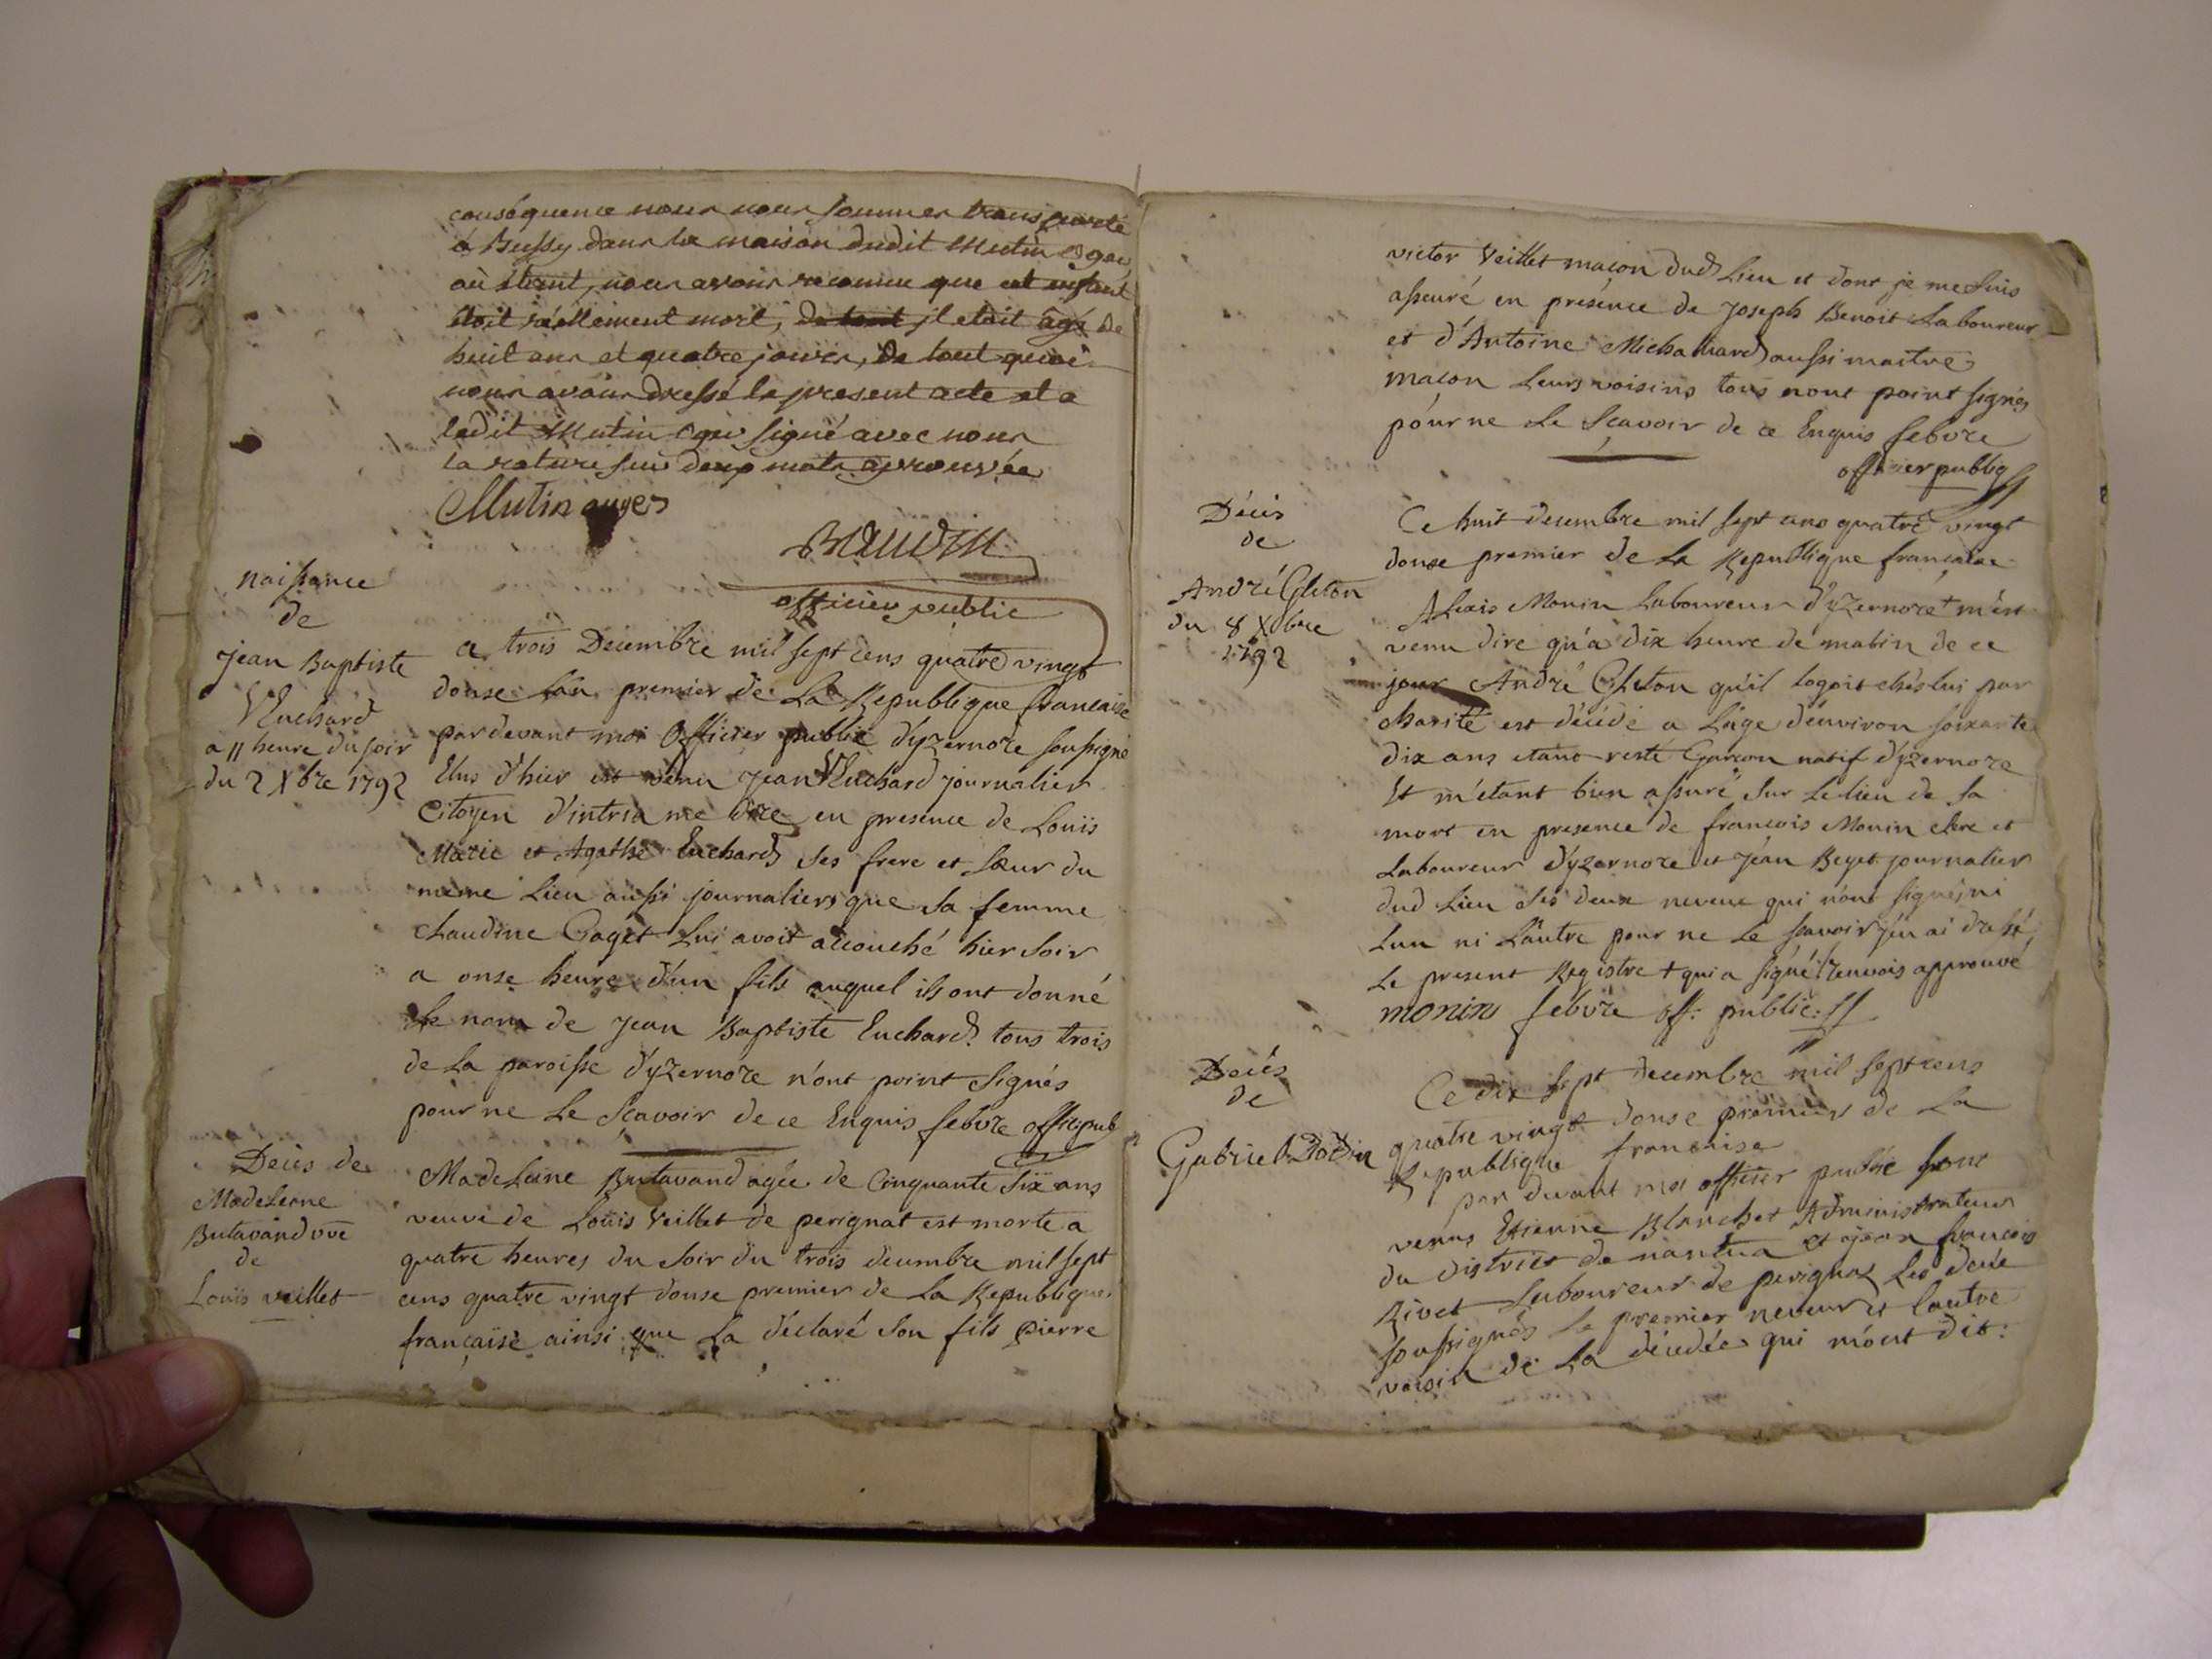 conséquence nous nous sommes transporté
a Bussy dans la maison dudit Mutin oger
où étant, nous avons reconnu que cet enfant
étoit réellement mort, de tout il etoit âgé de
huit ans et quatre jours, de tout quoi
nous avons dressé le present acte et a
ledit Mutin oger signé avec nous
la rature sur deux mots approuvée
Mutin auger
Baudin
officier public
naissance
de
Jean Baptiste
Euchard
a 11 heure du soir
du 2 Xbre 1792
a trois Decembre mil sept cens quatre vingt
douse l'an premier de La Republique francaise
pardevant moi Officier public d'yzernore soussigné
Elus d'hier est venu Jean Euchard journalier
Citoyen d'intria me dire en presence de Louïs
Marie et Agathe Euchard ses frere et sœur du
meme Lieu aussi journaliers que sa femme
claudine Gaget Lui avoit accouché hier soir
a onse heure d'un fils auquel ils ont donné
Le nom de Jean Baptiste Euchard tous trois
de La paroisse d'yzernore n'ont point signés
pour ne Le Scavoir de ce Enquis febvre offic pub
Décès de
Madeleine
Butavand vve
de
Louïs veillet
Madeleine Butavand agée de Cinquante Six ans
veuve de Louïs Veillet de perignat est morte a
quatre heures du soir du trois decembre mil sept
cens quatre vingt douse premier de La Republique
française ainsi que La déclaré son fils pierre
victor Veillet macon dud Lieu et dont je me suis
asseuré en présence de Joseph Benoit Laboureur
et d'Antoine Michaillard aussi maitre
macon Leurs voisins tous nont point signés
pour ne Le Scavoir de ce Enquis febvre
officier public
Décès
de
André Cleton
du 8 Xbre
1792
Ce huit decembre mil sept cens quatre vingt
douse premier de La Republique francaise
ALexis Monin Laboureur d'yzernore + m'est
venu dire qu'a dix heure de matin de ce
jour André Cleton qu'il logoit chés lui par
charité est décédé a L'age d'environ soixante
dix ans etant resté Garcon natif d'yzernore
Et m'étant bien assuré sur Le lieu de sa
mort en presence de francois Monin clerc et
Laboureur d'yzernore et Jéan Beget journalier
dud Lieu ses deux neveux qui n'ont signé, ni
Lun ni L'autre pour ne Le scavoir j'en ai dressé
Le present Registre + qui a signé / renvois approuvé
monin febvre off: public:
Décès
de
Gabriel Bodin
Ce dix sept decembre mil sept cens
quatre vingt douse premier de La
Republique francaise
par devant moi officier public sont
venus Etienne Blanchet Administrateur
du District de nantua et Jean francois
Rivet Laboureur de perignat Les deux
soussignés Le premier neveur et L'autre
voisin de La décédée qui m'ont dit: